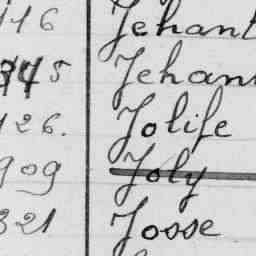 116 Jehant
345 Jehan
126. Jolife
909 Joly
321 Josse